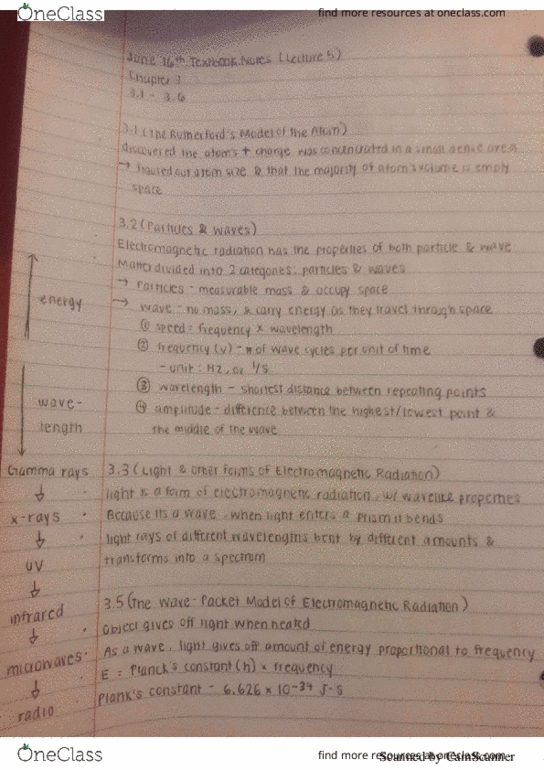 OneClass
find more resources at oneclass.com
June 16th Textbook Notes (Lecture 5)
Chapter 3
3.1 - 3.6
3.1 (The Rutherford's Model of the Atom)
discovered the atom's + charge was concentrated in a small dense area
→ figured out atom size & that the majority of atom's volume is empty
space
3.2 (Particles & waves)
Electromagnetic radiation has the properties of both particle & wave
Matter divided into 2 categories: particles & waves
→ Particles - measurable mass & occupy space
→ wave - no mass, & carry energy as they travel through space
① speed = frequency x wavelength
② frequency (v) - # of wave cycles per unit of time
- unit: Hz, or 1/s
③ wavelength - shortest distance between repeating points
④ amplitude - difference between the highest/lowest point &
the middle of the wave
energy
wave-
length
Gamma rays
↓
x-rays
↓
UV
↓
infrared
↓
microwaves
↓
radio
3.3 (Light & other forms of Electromagnetic Radiation)
light is a form of electromagnetic radiation w/ wavelike properties
Because its a wave, when light enters a prism it bends
light rays of different wavelengths bent by different amounts &
transforms into a spectrum
3.5 (The Wave-Packet Model of Electromagnetic Radiation)
object gives off light when heated
As a wave, light gives off amount of energy proportional to frequency
E = Planck's constant (h) x frequency
Plank's constant - 6.626 x 10-34 J·s
OneClass
find more resources at oneclass.com
Scanned by CamScanner